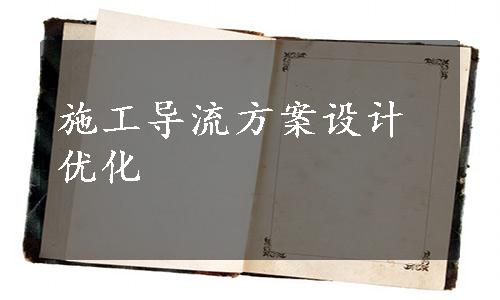 施工导流方案设计
优化